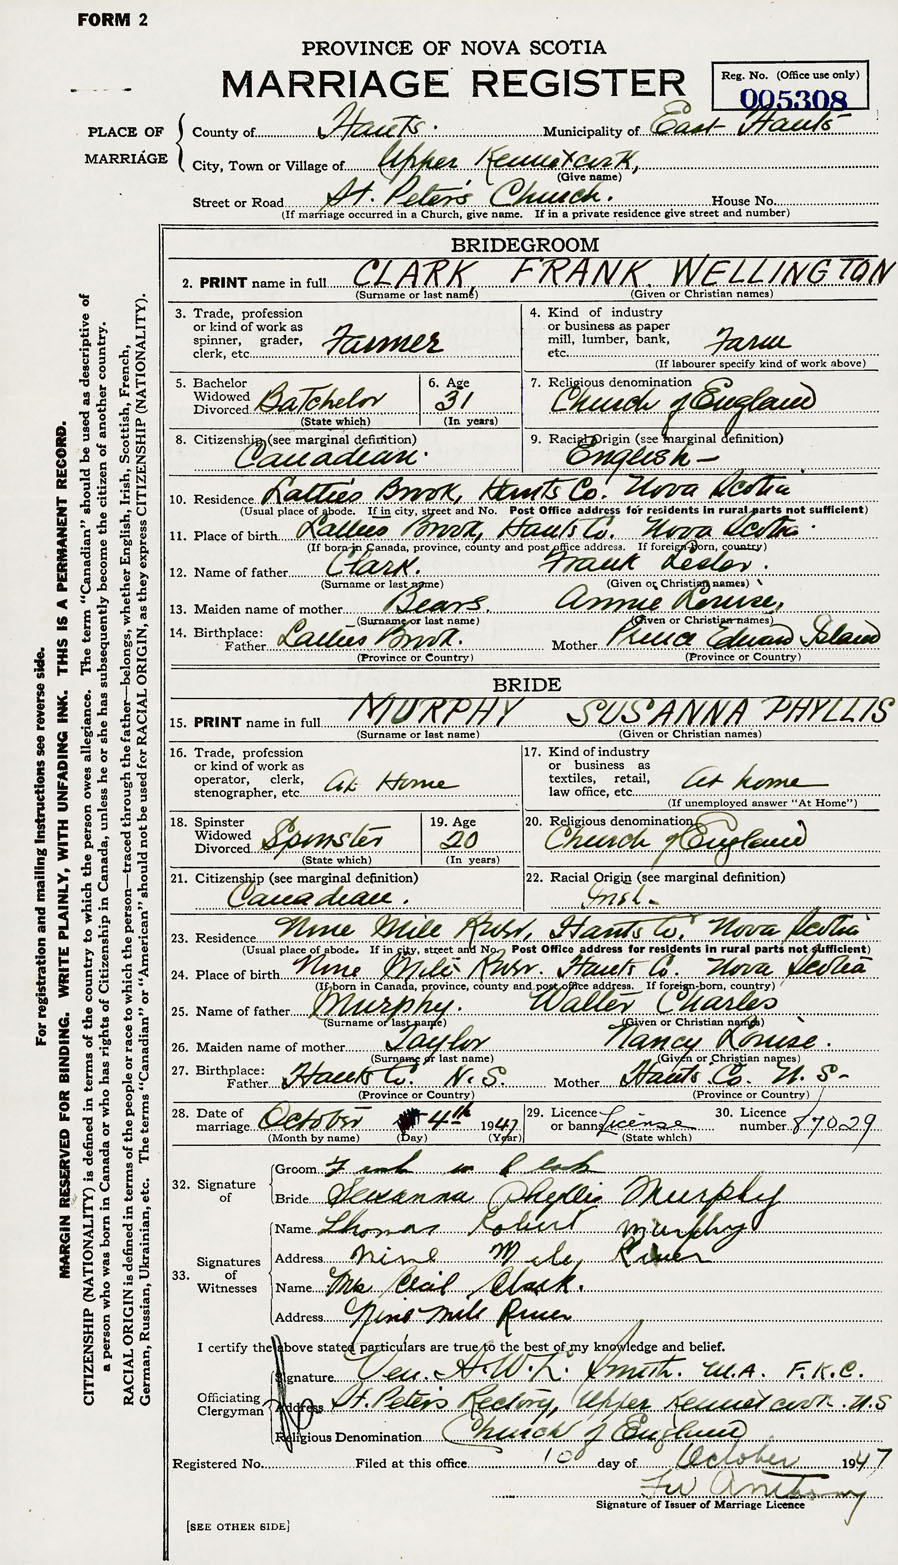 FORM 2
PROVINCE OF NOVA SCOTIA
MARRIAGE REGISTER
Reg. No. (Office use only)
005308
PLACE OF MARRIAGE
County of Hants. Municipality of East Hants
City, Town or Village of Upper Kennetcook,
(Give name)
Street or Road St. Peter's Church. House No.
(If marriage occurred in a Church, give name. If in a private residence give street and number)
BRIDEGROOM
2. PRINT name in full CLARK, FRANK WELLINGTON
(Surname or last name) (Given or Christian names)
3. Trade, profession or kind of work as spinner, grader, clerk, etc. Farmer
4. Kind of industry or business as paper mill, lumber, bank, etc. Farm
(If labourer specify kind of work above)
5. Bachelor Widowed Divorced Batchelor
(State which)
6. Age 31
(In years)
7. Religious denomination Church of England
8. Citizenship (see marginal definition) Canadian.
9. Racial Origin (see marginal definition) English
10. Residence Latties Brook, Hants Co. Nova Scotia
(Usual place of abode. If in city, street and No. Post Office address for residents in rural parts not sufficient)
11. Place of birth Latties Brook, Hants Co. Nova Scotia.
(If born in Canada, province, county and post office address. If foreign-born, country)
12. Name of father Clark. Frank Lester.
(Surname or last name) (Given or Christian names)
13. Maiden name of mother Bears, Annie Louise,
(Surname or last name) (Given or Christian names)
14. Birthplace: Father Latties Brook. Mother Prince Edward Island
(Province or Country) (Province or Country)
BRIDE
15. PRINT name in full MURPHY SUSANNA PHYLLIS
(Surname or last name) (Given or Christian names)
16. Trade, profession or kind of work as operator, clerk, stenographer, etc. At Home
17. Kind of industry or business as textiles, retail, law office, etc. At home
(If unemployed answer "At Home")
18. Spinster Widowed Divorced Spinster
(State which)
19. Age 20
(In years)
20. Religious denomination Church of England
21. Citizenship (see marginal definition) Canadian.
22. Racial Origin (see marginal definition) Irish.
23. Residence Nine Mile River, Hants Co, Nova Scotia
(Usual place of abode. If in city, street and No. Post Office address for residents in rural parts not sufficient)
24. Place of birth Nine Mile River. Hants Co. Nova Scotia
(If born in Canada, province, county and post office address. If foreign-born, country)
25. Name of father Murphy. Walter Charles
(Surname or last name) (Given or Christian names)
26. Maiden name of mother Taylor Nancy Louise.
(Surname or last name) (Given or Christian names)
27. Birthplace: Father Hants Co. N.S. Mother Hants Co. N.S.
(Province or Country) (Province or Country)
28. Date of marriage October 4th 1947
(Month by name) (Day) (Year)
29. Licence or banns License
(State which)
30. Licence number 87029
32. Signature of
Groom Frank W Clark
Bride Susanna Phyllis Murphy
33. Signatures of Witnesses
Name Thomas Robert Murphy
Address Nine Mile River
Name Mrs Cecil Clark.
Address Nine Mile River
I certify the above stated particulars are true to the best of my knowledge and belief.
Officiating Clergyman
Signature Ven. A.W.L. Smith. M.A. F.K.C.
Address St. Peter's Rectory, Upper Kennetcook. N.S
Religious Denomination Church of England
Registered No. Filed at this office 10 day of October 1947
Signature of Issuer of Marriage Licence
[SEE OTHER SIDE]
For registration and mailing instructions see reverse side.
MARGIN RESERVED FOR BINDING. WRITE PLAINLY, WITH UNFADING INK. THIS IS A PERMANENT RECORD.
CITIZENSHIP (NATIONALITY) is defined in terms of the country to which the person owes allegiance. The term "Canadian" should be used as descriptive of
a person who was born in Canada or who has rights of Citizenship in Canada, unless he or she has subsequently become the citizen of another country.
RACIAL ORIGIN is defined in terms of the people or race to which the person—traced through the father—belongs, whether English, Irish, Scottish, French,
German, Russian, Ukrainian, etc. The terms "Canadian" or "American" should not be used for RACIAL ORIGIN, as they express CITIZENSHIP (NATIONALITY).